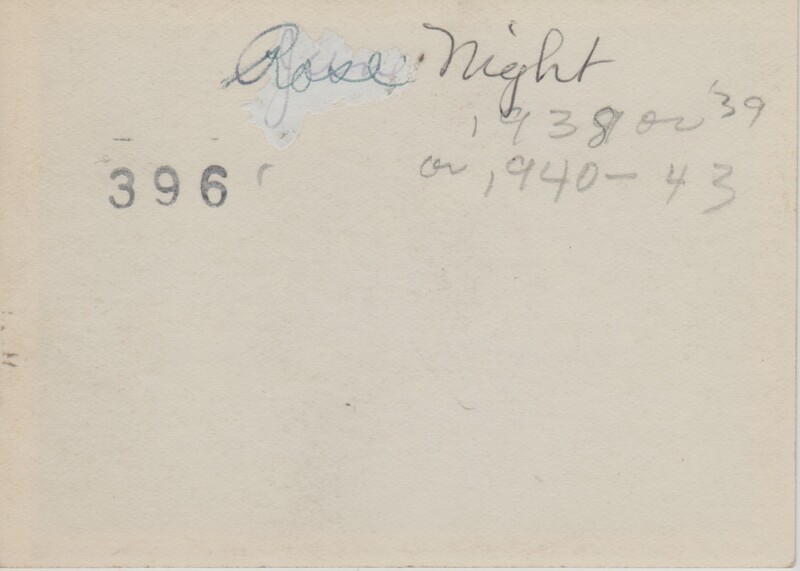 Rose Night
1938 or '39
or 1940-43
396